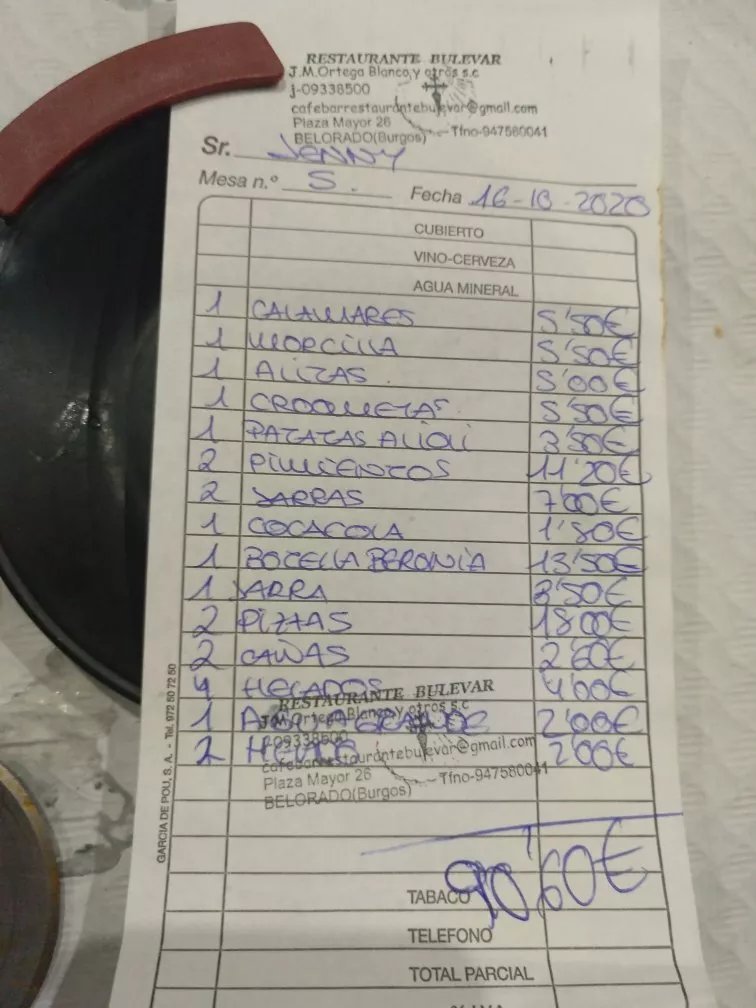 RESTAURANTE BULEVAR
J.M.Ortega Blanco,y otros s.c
j-09338500
cafebarrestaurantebulevar@gmail.com
Plaza Mayor 26 Tfno-947580041
BELORADO(Burgos)
Sr. JENNY
Mesa n.º 5. Fecha 16-10-2020
CUBIERTO
VINO-CERVEZA
AGUA MINERAL
1 CALAMARES 5'50€
1 MORCILLA 5'50€
1 ALITAS 5'00€
1 CROQUETAS 5'50€
1 PATATAS ALIOLI 3'50€
2 PIMIENTOS 11'20€
2 JARRAS 7'00€
1 COCACOLA 1'80€
1 BOTELLA BERONIA 13'50€
1 JARRA 3'50€
2 PIZZAS 18'00€
2 CAÑAS 2'60€
4 HELADOS 4'00€
RESTAURANTE BULEVAR
1 AGUA GRANDE 2'00€
J.M.Ortega Blanco,y otros s.c
2 2'00€
j-09338500
cafebarrestaurantebulevar@gmail.com
Plaza Mayor 26 Tfno-947580041
BELORADO(Burgos)
90'60€
TABACO
TELEFONO
TOTAL PARCIAL
% I.V.A.
GARCIA DE POU, S. A. - Tel. 972 50 72 50